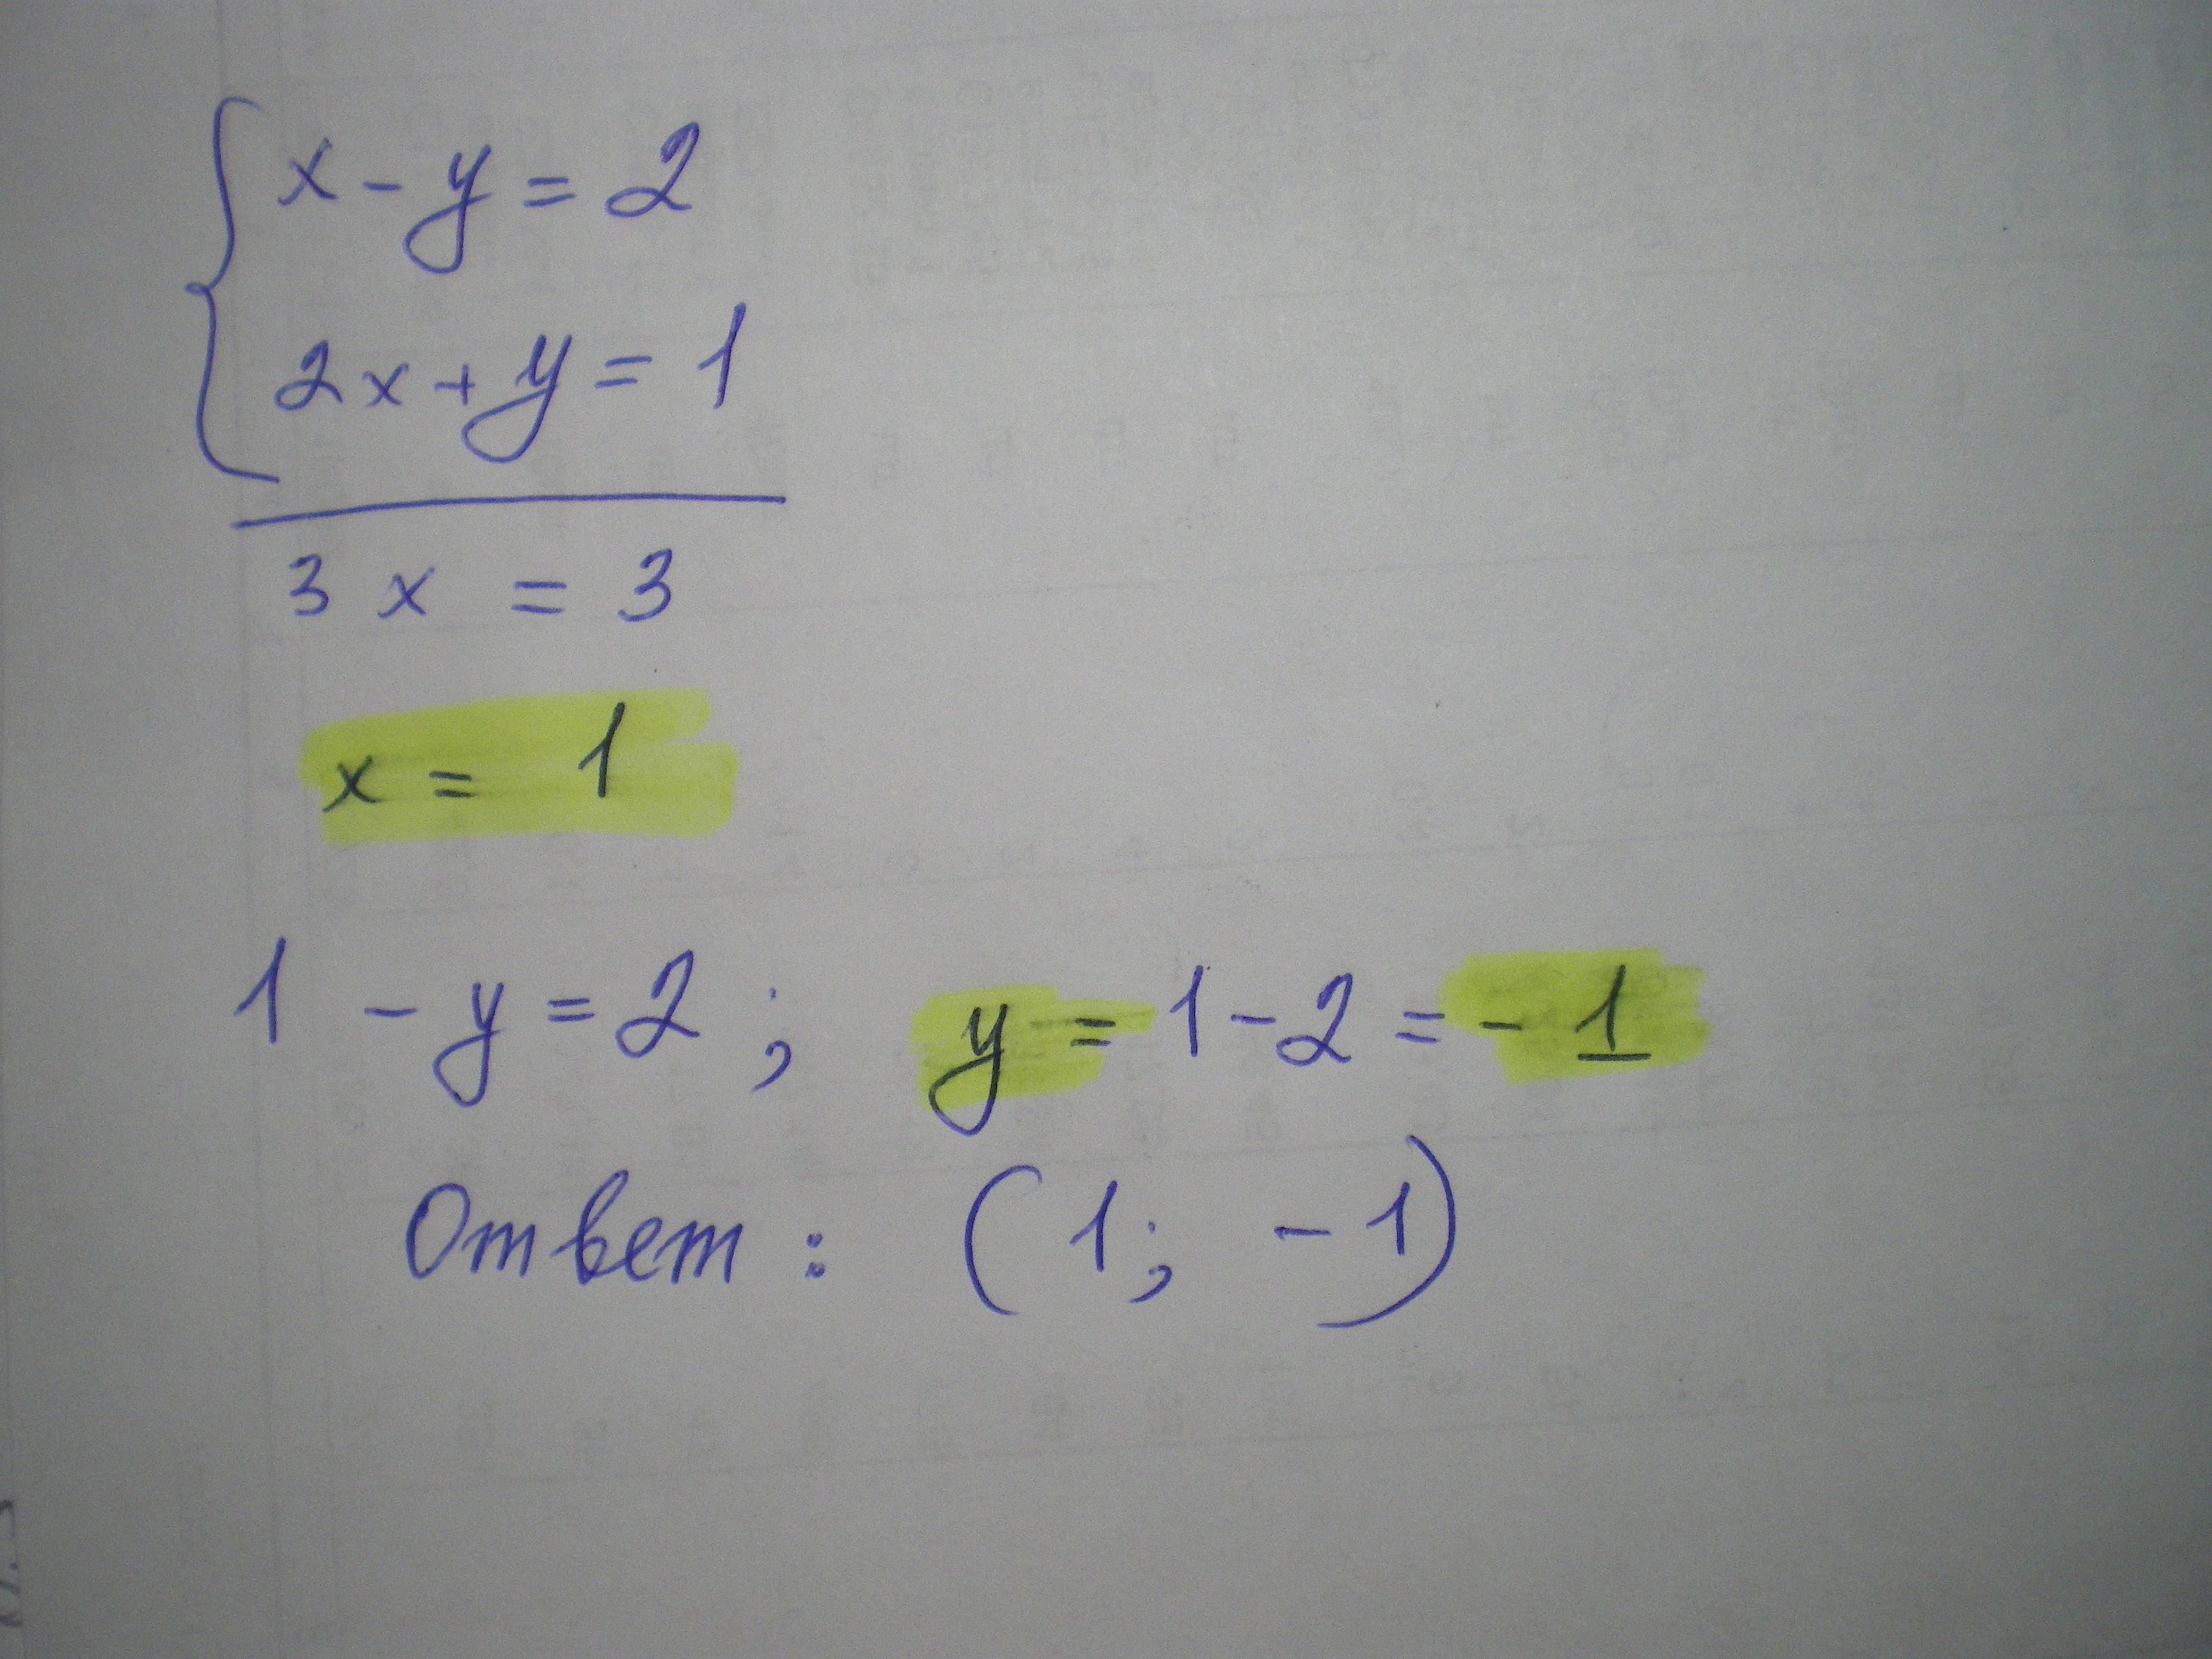 x - y = 2
2x + y = 1
3x = 3
x = 1
1 - y = 2 ; y = 1 - 2 = - 1
Ответ : ( 1 ; - 1 )